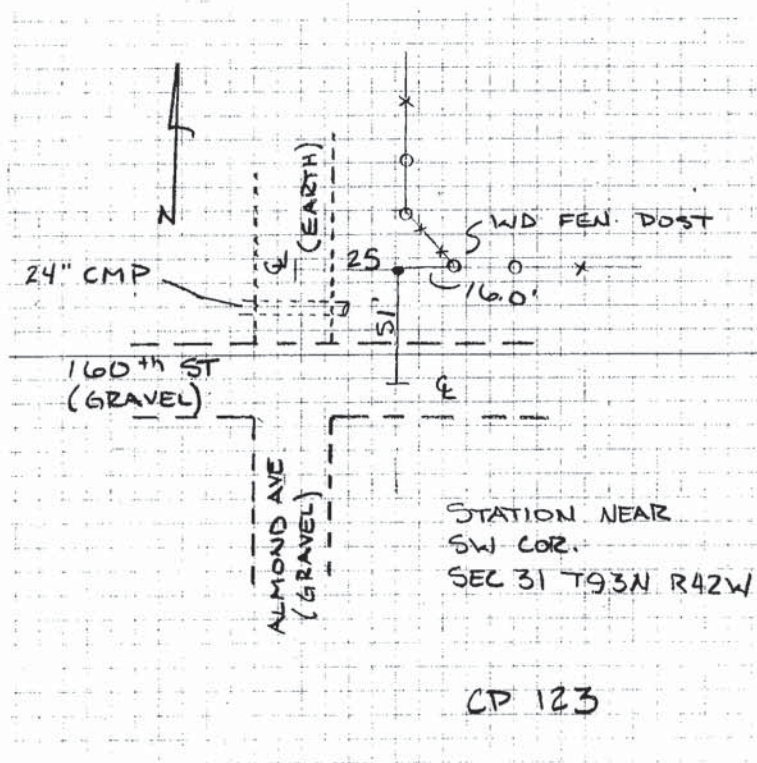 N
(EARTH)
WD FEN. POST
25
24" CMP
16.0'
51
160th ST
(GRAVEL)
ALMOND AVE
(GRAVEL)
STATION NEAR
SW COR.
SEC 31 T93N R42W
CP 123